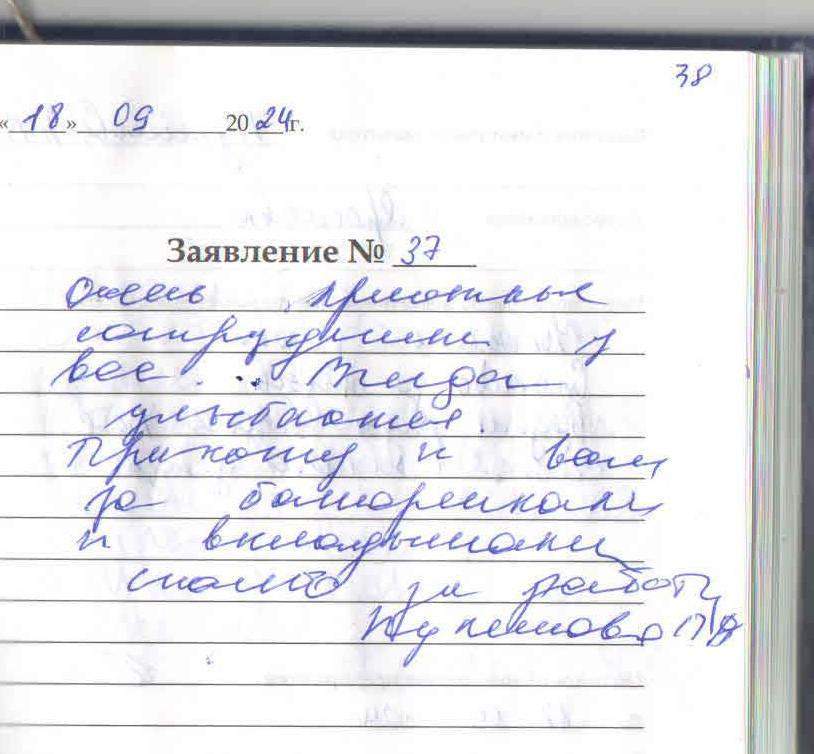 38
«18» 09 2024г.
Заявление № 37
Очень приятные
сотрудники у
вас. Всегда
улыбаются.
Прихожу к вам
за батарейками
и вкладышами
спасибо за работу